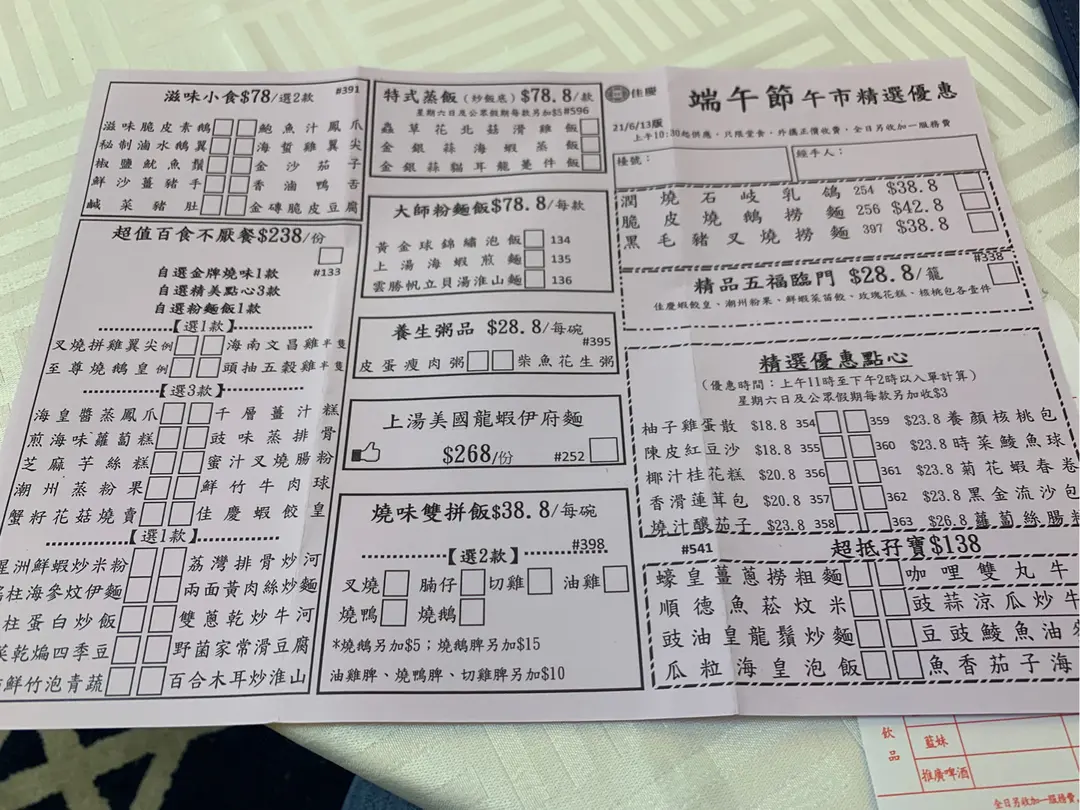 滋味小食$78/選2款 #391
滋味脆皮素鵝 鮑魚汁鳳爪
秘制滷水鵝翼 海蜇雞翼尖
椒鹽魷魚鬚 金沙茄子
鮮沙薑豬手 香滷鴨舌
鹹菜豬肚 金磚脆皮豆腐
超值百食不厭餐$238/份
自選金牌燒味1款 #133
自選精美點心3款
自選粉麵飯1款
【選1款】
叉燒拼雞翼尖例 海南文昌雞半隻
至尊燒鵝皇例 頭抽五穀雞半隻
【選3款】
海皇醬蒸鳳爪 千層薑汁糕
煎海味蘿蔔糕 豉味蒸排骨
芝麻芋絲糕 蜜汁叉燒腸粉
潮州蒸粉果 鮮竹牛肉球
蟹籽花菇燒賣 佳慶蝦餃皇
【選1款】
星洲鮮蝦炒米粉 荔灣排骨炒河
柱海參炆伊麵 兩面黃肉絲炒麵
柱蛋白炒飯 雙蔥乾炒牛河
菜乾煸四季豆 野菌家常滑豆腐
鮮竹泡青蔬 百合木耳炒淮山
特式蒸飯(炒飯底)$78.8/款
星期六日及公眾假期每款另加$5 #596
蟲草花北菇滑雞飯
金銀蒜海蝦蒸飯
金銀蒜貓耳龍躉件飯
大師粉麵飯$78.8/每款
黃金球錦繡泡飯 134
上湯海蝦煎麵 135
雲勝帆立貝湯淮山麵 136
養生粥品 $28.8/每碗
#395
皮蛋瘦肉粥 柴魚花生粥
上湯美國龍蝦伊府麵
$268/份 #252
燒味雙拼飯$38.8/每碗
#398
【選2款】
叉燒 腩仔 切雞 油雞
燒鴨 燒鵝
*燒鵝另加$5；燒鵝脾另加$15
油雞脾、燒鴨脾、切雞脾另加$10
佳慶 端午節午市精選優惠
21/6/13版
上午10:30起供應，只限堂食，外攜正價收費，全日另收加一服務費
檯號： 經手人：
潤燒石岐乳鴿 254 $38.8
脆皮燒鵝撈麵 256 $42.8
黑毛豬叉燒撈麵 397 $38.8
#338
精品五福臨門 $28.8/籠
佳慶蝦餃皇、潮州粉果、鮮蝦菜苗餃、玫瑰花糕、核桃包各壹件
精選優惠點心
(優惠時間：上午11時至下午2時以入單計算)
星期六日及公眾假期每款另加收$3
柚子雞蛋散 $18.8 354 359 $23.8 養顏核桃包
陳皮紅豆沙 $18.8 355 360 $23.8 時菜鯪魚球
椰汁桂花糕 $20.8 356 361 $23.8 菊花蝦春卷
香滑蓮茸包 $20.8 357 362 $23.8 黑金流沙包
燒汁釀茄子 $23.8 358 363 $26.8 蘿蔔絲腸粉
#541 超抵孖寶$138
蠔皇薑蔥撈粗麵 咖哩雙丸牛
順德魚菘炆米 豉蒜涼瓜炒牛
豉油皇龍鬚炒麵 豆豉鯪魚油
瓜粒海皇泡飯 魚香茄子海
飲品
藍妹
推廣啤酒
全日另收加一服務費